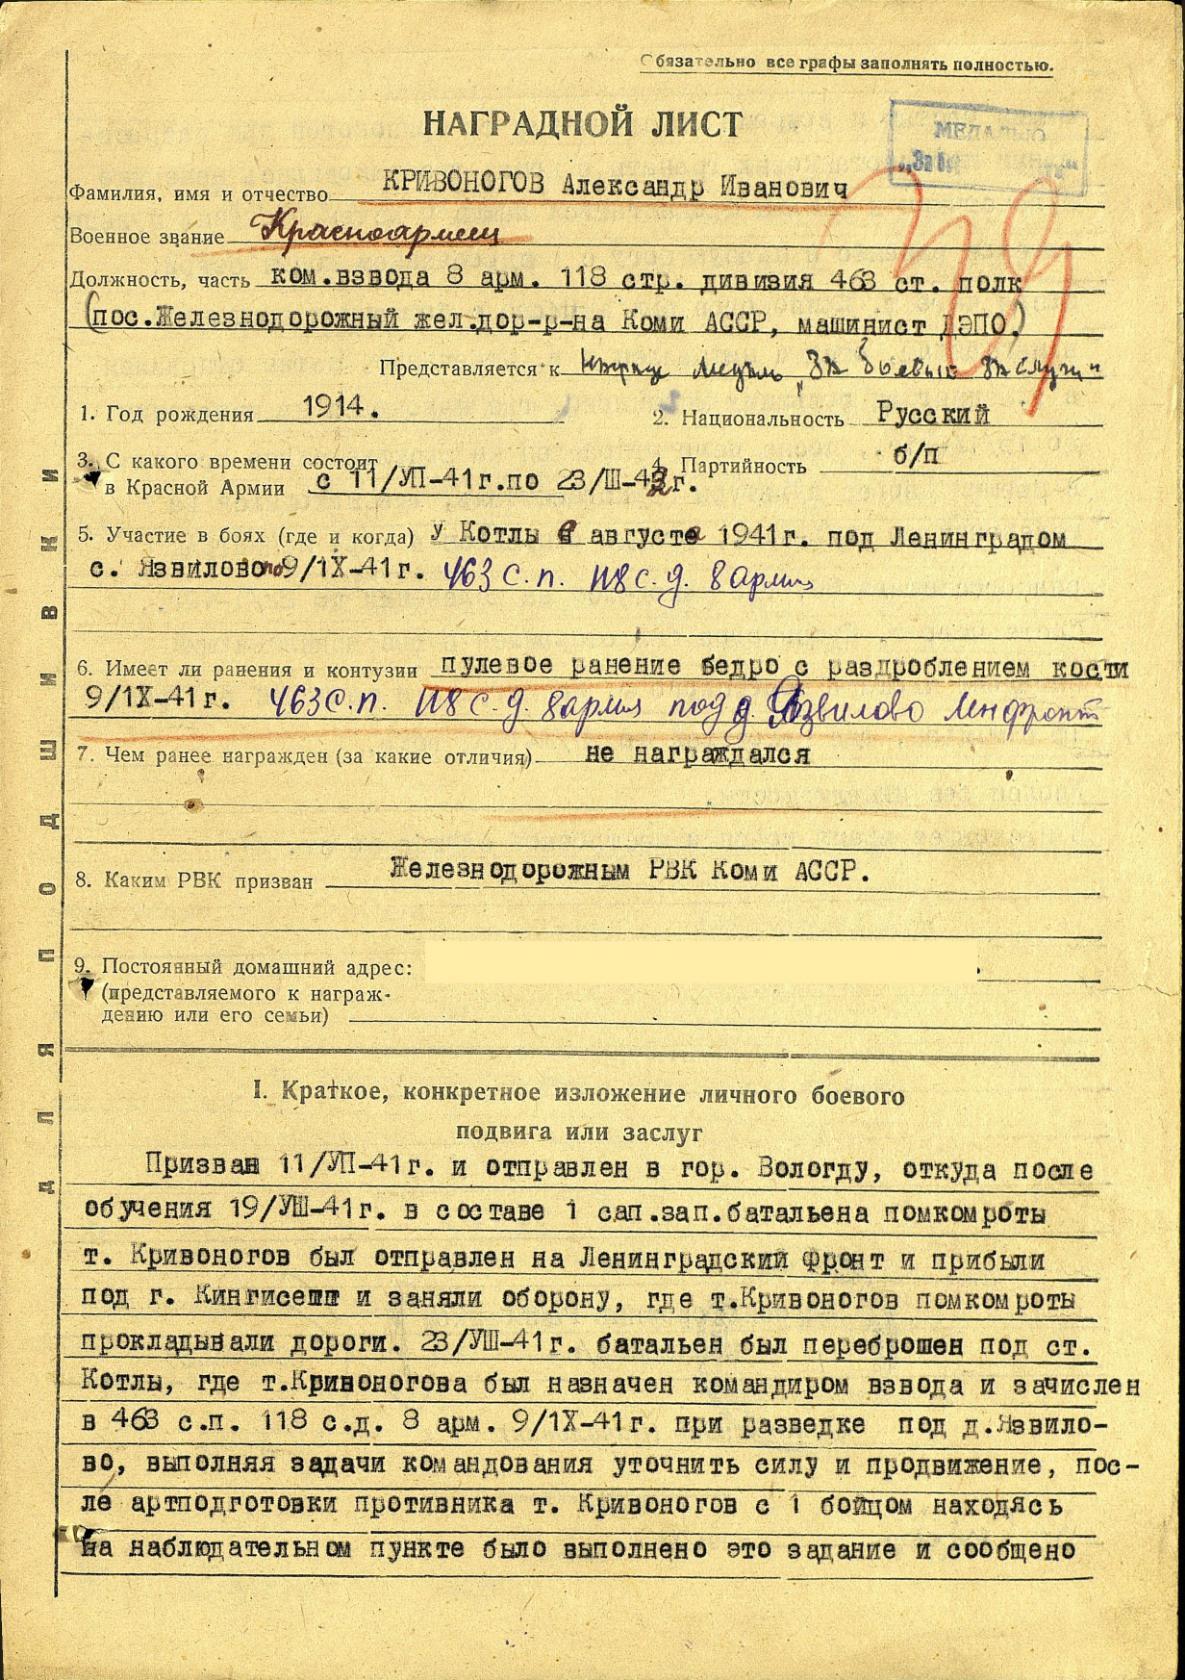 Обязательно все графы заполнять полностью.
НАГРАДНОЙ ЛИСТ
МЕДАЛЬЮ
„За бо
Фамилия, имя и отчество КРИВОНОГОВ Александр Иванович
Военное звание Красноармеец
Должность, часть ком.взвода 8 арм. 118 стр. дивизия 463 ст. полк
(пос.Железнодорожный жел.дор-р-на Коми АССР, машинист ДЭПО)
Представляется к медаль „За боевые заслуги"
1. Год рождения 1914. 2. Национальность Русский
3. С какого времени состоит 4. Партийность б/п
в Красной Армии с 11/УП-41г.по 23/Ш-42г.
5. Участие в боях (где и когда) у Котлы в августа 1941г. под Ленинградом
с. Язвилово по 9/1Х-41г. 463 с.п. 118 с.д. 8 армия
6. Имеет ли ранения и контузии пулевое ранение бедро с раздроблением кости
9/1Х-41г. 463 с.п. 118 с.д. 8 армия под д. Язвилово Ленфронт
7. Чем ранее награжден (за какие отличия) не награждался
8. Каким РВК призван Железнодорожным РВК Коми АССР.
9. Постоянный домашний адрес:
(представляемого к награж-
дению или его семьи)
ДЛЯ ПОДШИВКИ
I. Краткое, конкретное изложение личного боевого
подвига или заслуг
Призван 11/УП-41г. и отправлен в гор. Вологду, откуда после
обучения 19/УШ-41г. в составе 1 сап.зап.батальена помкомроты
т. Кривоногов был отправлен на Ленинградский фронт и прибыли
под г. Кингисепп и заняли оборону, где т.Кривоногов помкомроты
прокладывали дороги. 23/УШ-41г. батальен был переброшен под ст.
Котлы, где т.Кривоногова был назначен командиром взвода и зачислен
в 463 с.п. 118 с.д. 8 арм. 9/1Х-41г. при разведке под д.Язвило-
во, выполняя задачи командования уточнить силу и продвижение, пос-
ле артподготовки противника т. Кривоногов с 1 бойцом находясь
на наблюдательном пункте было выполнено это задание и сообщено